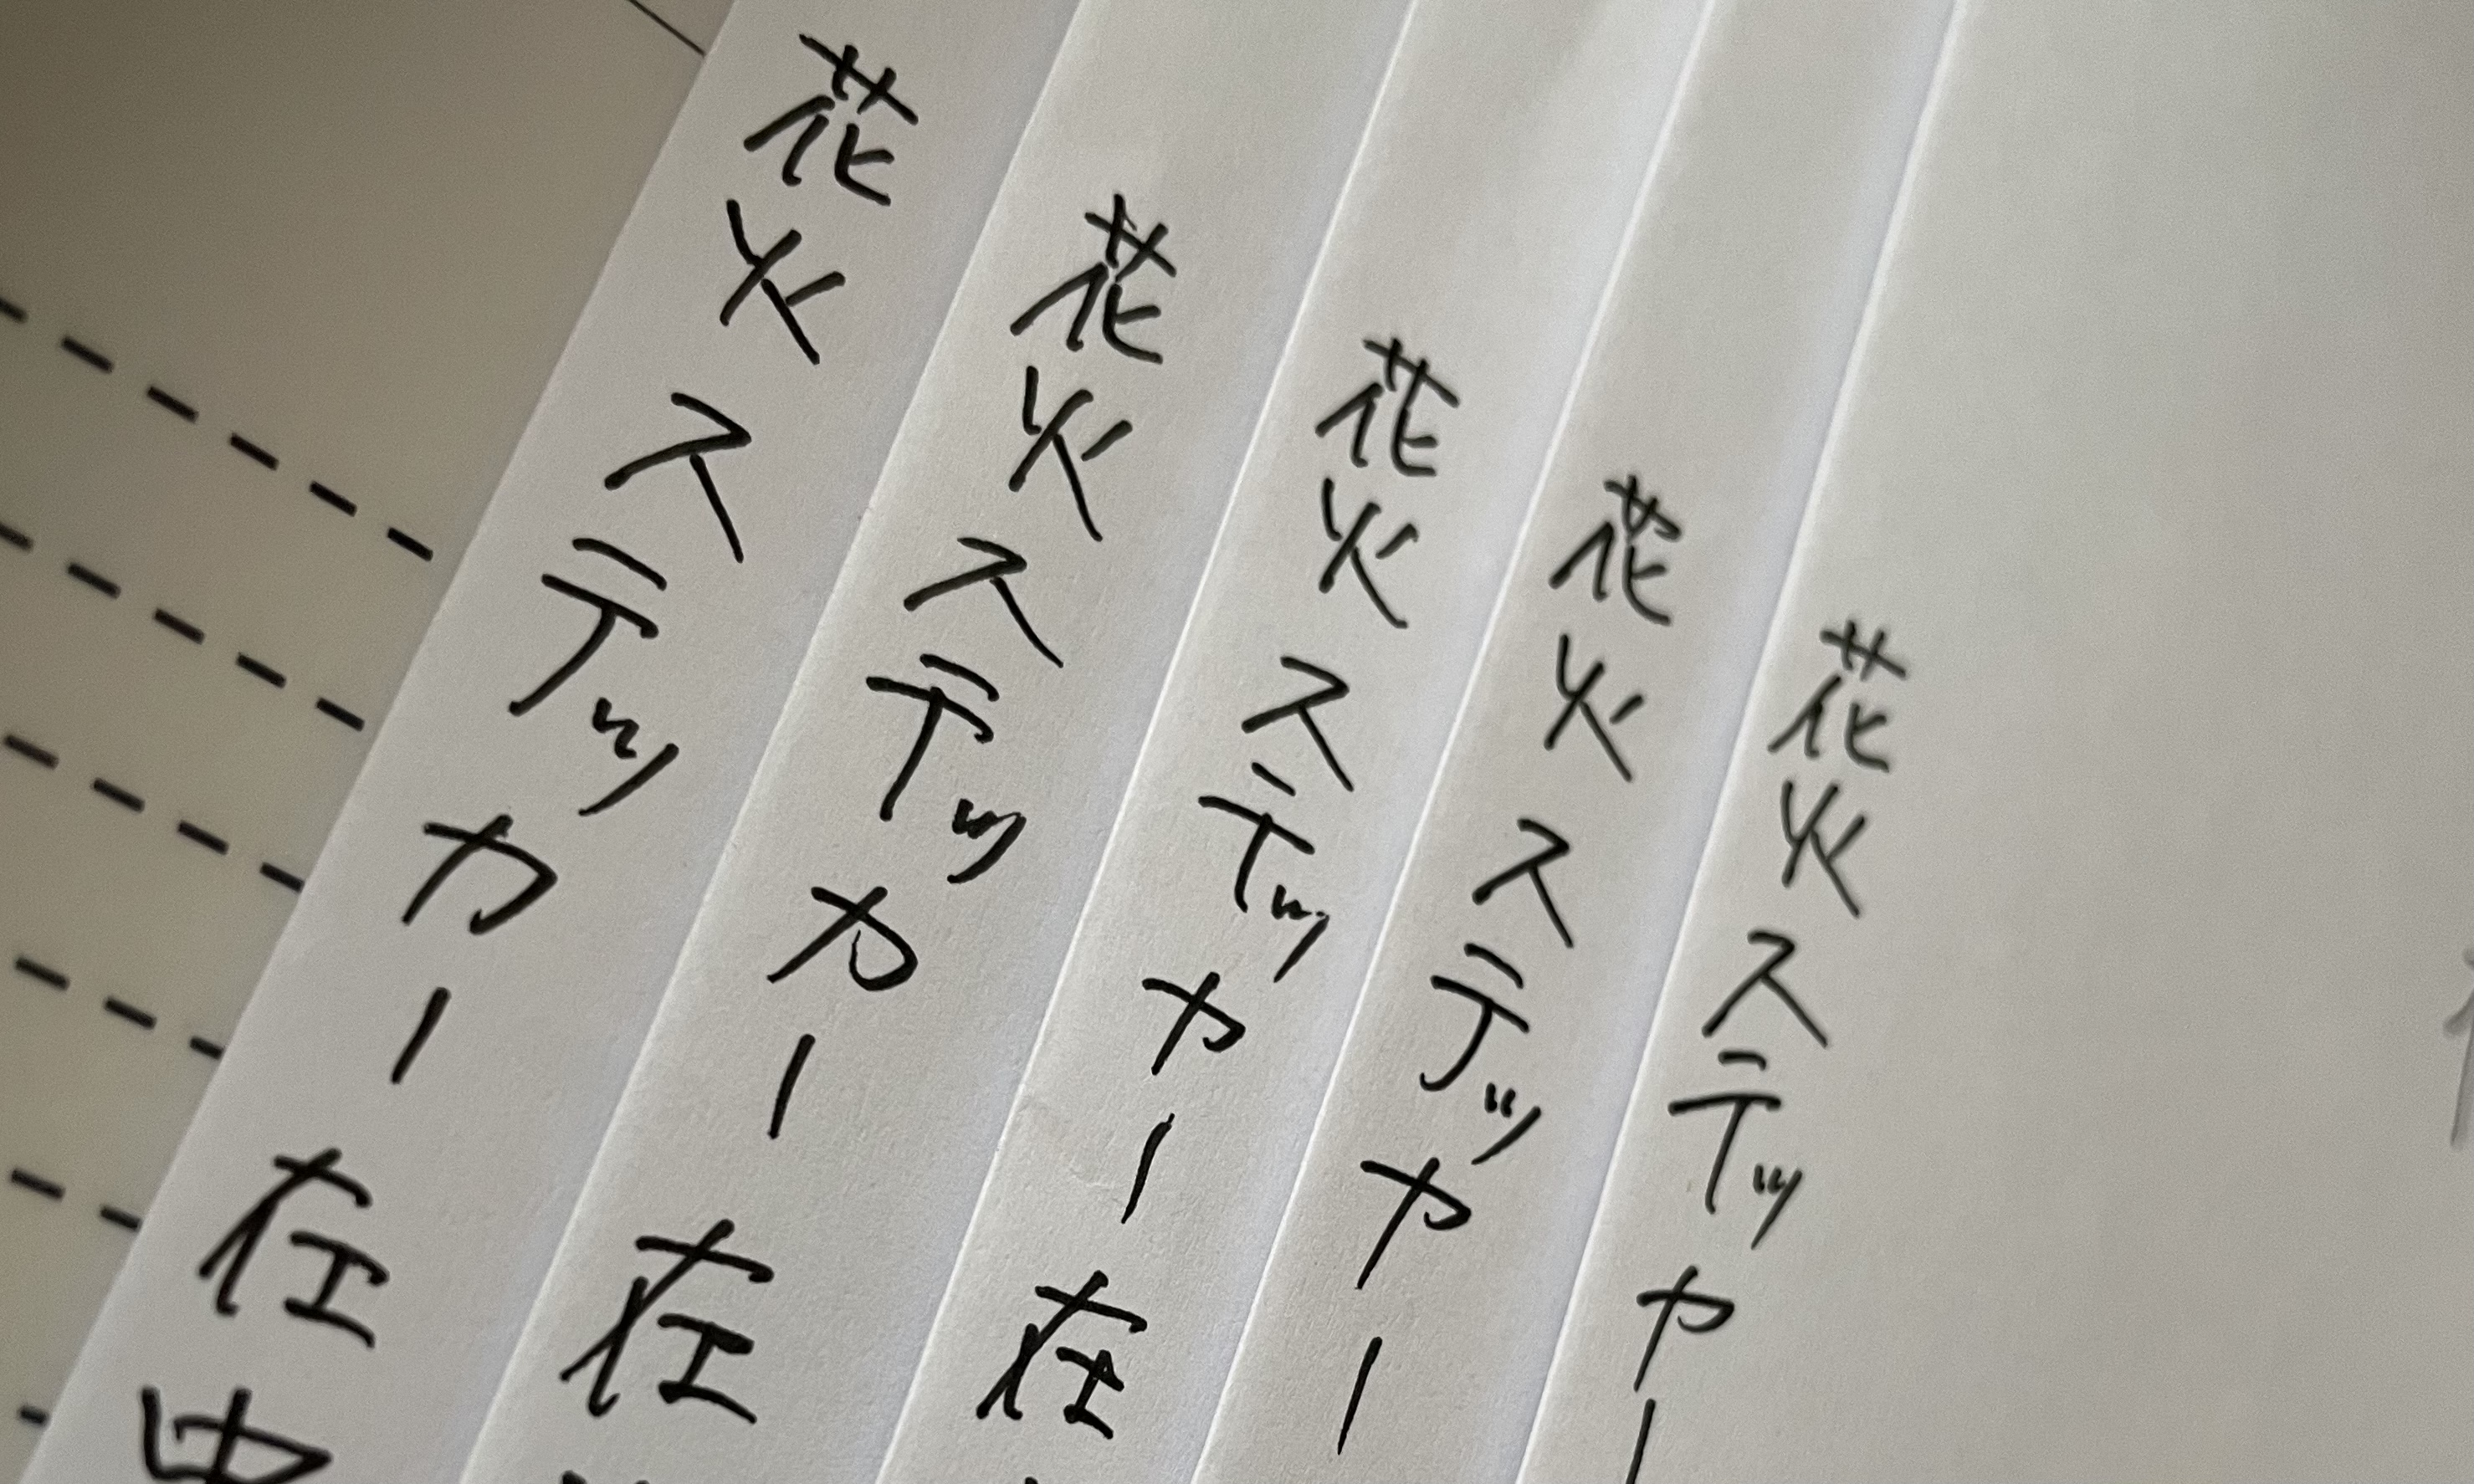 花火ステッカー在中
花火ステッカー在
花火ステッカー在
花火ステッカー
花火ステッカー